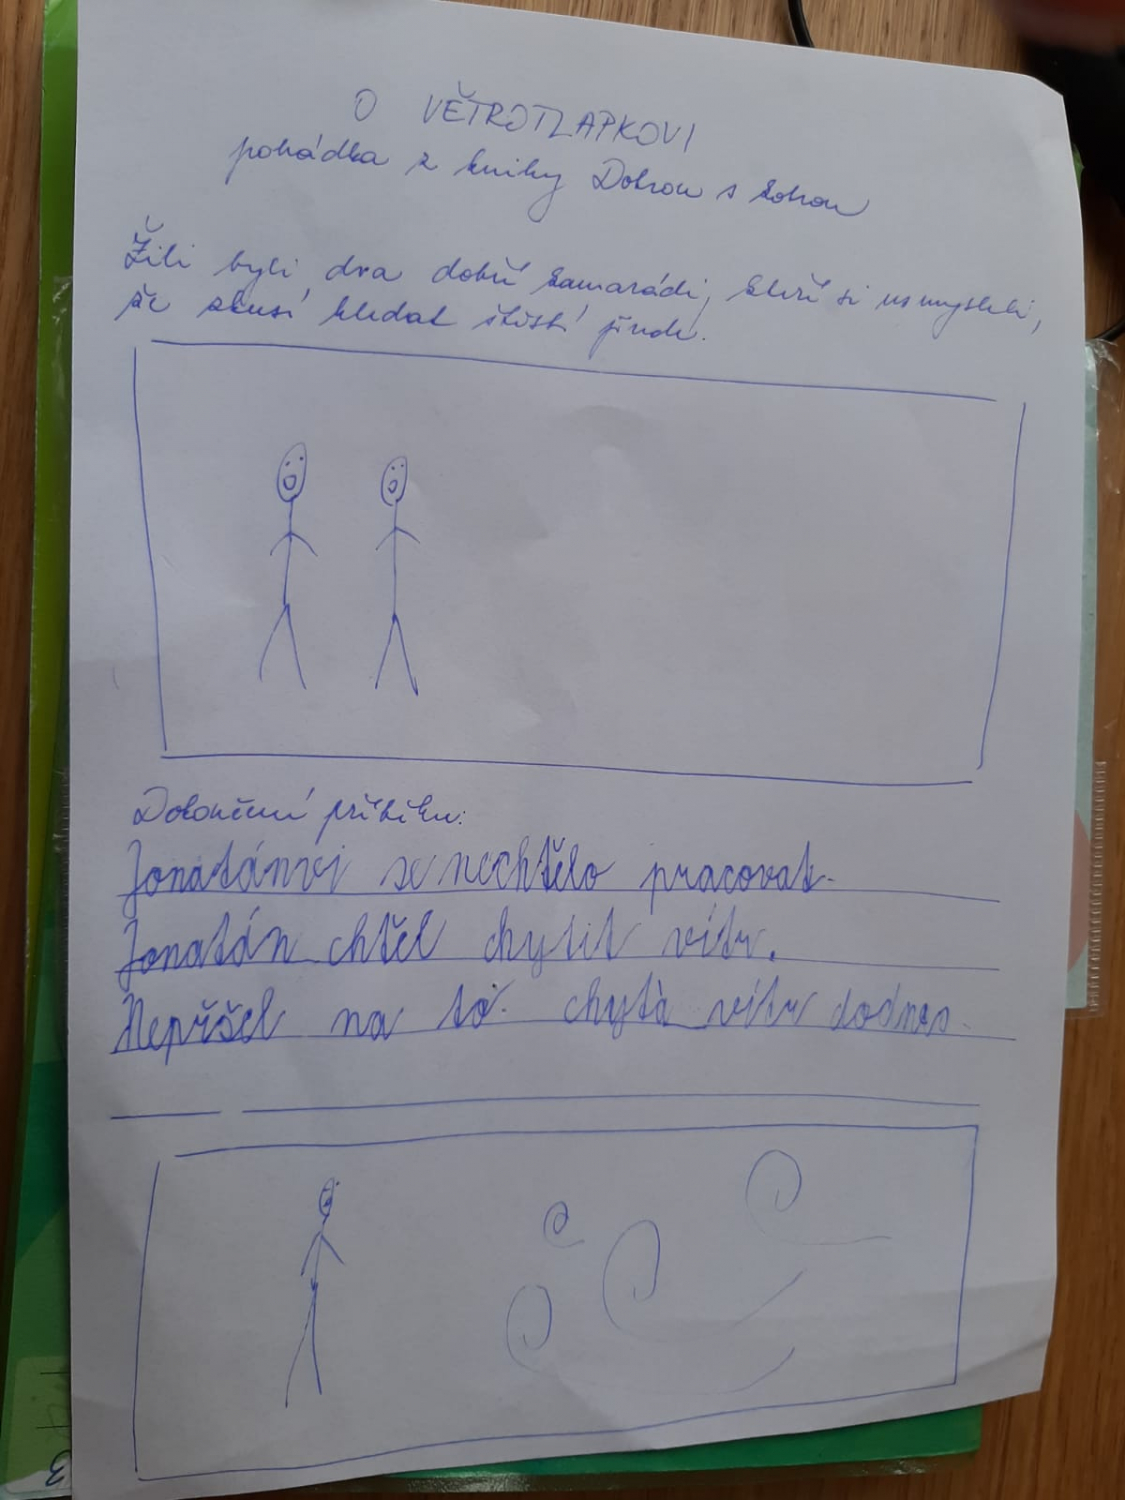 O VĚTROTLAPKOVI
pohádka z knihy Dobrou s sobrou
Žili byli dva dobří kamarádi, kteří si usmysleli,
že zkusí hledat štěstí jinde.
Dokončení příběhu:
Jonatánvi se nechtělo pracovat.
Jonatán chtěl chytit vítr.
Nepřšel na to. chytá vítr dodnes.